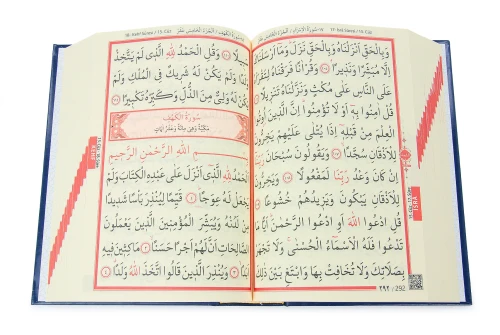 وَبِالْحَقِّ اَنْزَلْنَاهُ وَبِالْحَقِّ نَزَلَ وَمَٓا اَرْسَلْنَاكَ
اِلَّا مُبَشِّرًا وَنَذ۪يرًا وَقُرْاٰنًا فَرَقْنَاهُ لِتَقْرَاَهُ
عَلَى النَّاسِ عَلٰى مُكْثٍ وَنَزَّلْنَاهُ تَنْز۪يلًا
قُلْ اٰمِنُوا بِه۪ٓ اَوْ لَا تُؤْمِنُوا اِنَّ الَّذ۪ينَ اُو۫تُوا
الْعِلْمَ مِنْ قَبْلِه۪ٓ اِذَا يُتْلٰى عَلَيْهِمْ يَخِرُّونَ
لِلْاَذْقَانِ سُجَّدًا وَيَقُولُونَ سُبْحَانَ رَبِّنَٓا
اِنْ كَانَ وَعْدُ رَبِّنَا لَمَفْعُولًا وَيَخِرُّونَ
لِلْاَذْقَانِ يَبْكُونَ وَيَز۪يدُهُمْ خُشُوعًا
قُلِ ادْعُوا اللّٰهَ اَوِ ادْعُوا الرَّحْمٰنَ اَيًّا مَا
تَدْعُوا فَلَهُ الْاَسْمَٓاءُ الْحُسْنٰى وَلَا تَجْهَرْ
بِصَلَاتِكَ وَلَا تُخَافِتْ بِهَا وَابْتَغِ بَيْنَ ذٰلِكَ
٢٩٢ /292
ISRA
سَب۪يلًا وَقُلِ الْحَمْدُ لِلّٰهِ الَّذ۪ي لَمْ يَتَّخِذْ
وَلَدًا وَلَمْ يَكُنْ لَهُ شَر۪يكٌ فِي الْمُلْكِ وَلَمْ
يَكُنْ لَهُ وَلِيٌّ مِنَ الذُّلِّ وَكَبِّرْهُ تَكْب۪يرًا
سُورَةُ الْكَهْفِ
مَكِّيَّةٌ وَهِيَ مِائَةٌ وَعَشْرُ اٰيَاتٍ
بِسْمِ اللّٰهِ الرَّحْمٰنِ الرَّح۪يمِ
اَلْحَمْدُ لِلّٰهِ الَّذ۪ٓي اَنْزَلَ عَلٰى عَبْدِهِ الْكِتَابَ وَلَمْ
يَجْعَلْ لَهُ عِوَجًا قَيِّمًا لِيُنْذِرَ بَاْسًا شَد۪يدًا
مِنْ لَدُنْهُ وَيُبَشِّرَ الْمُؤْمِن۪ينَ الَّذ۪ينَ يَعْمَلُونَ
الصَّالِحَاتِ اَنَّ لَهُمْ اَجْرًا حَسَنًا مَاكِث۪ينَ ف۪يهِ
اَبَدًا وَيُنْذِرَ الَّذ۪ينَ قَالُوا اتَّخَذَ اللّٰهُ وَلَدًا